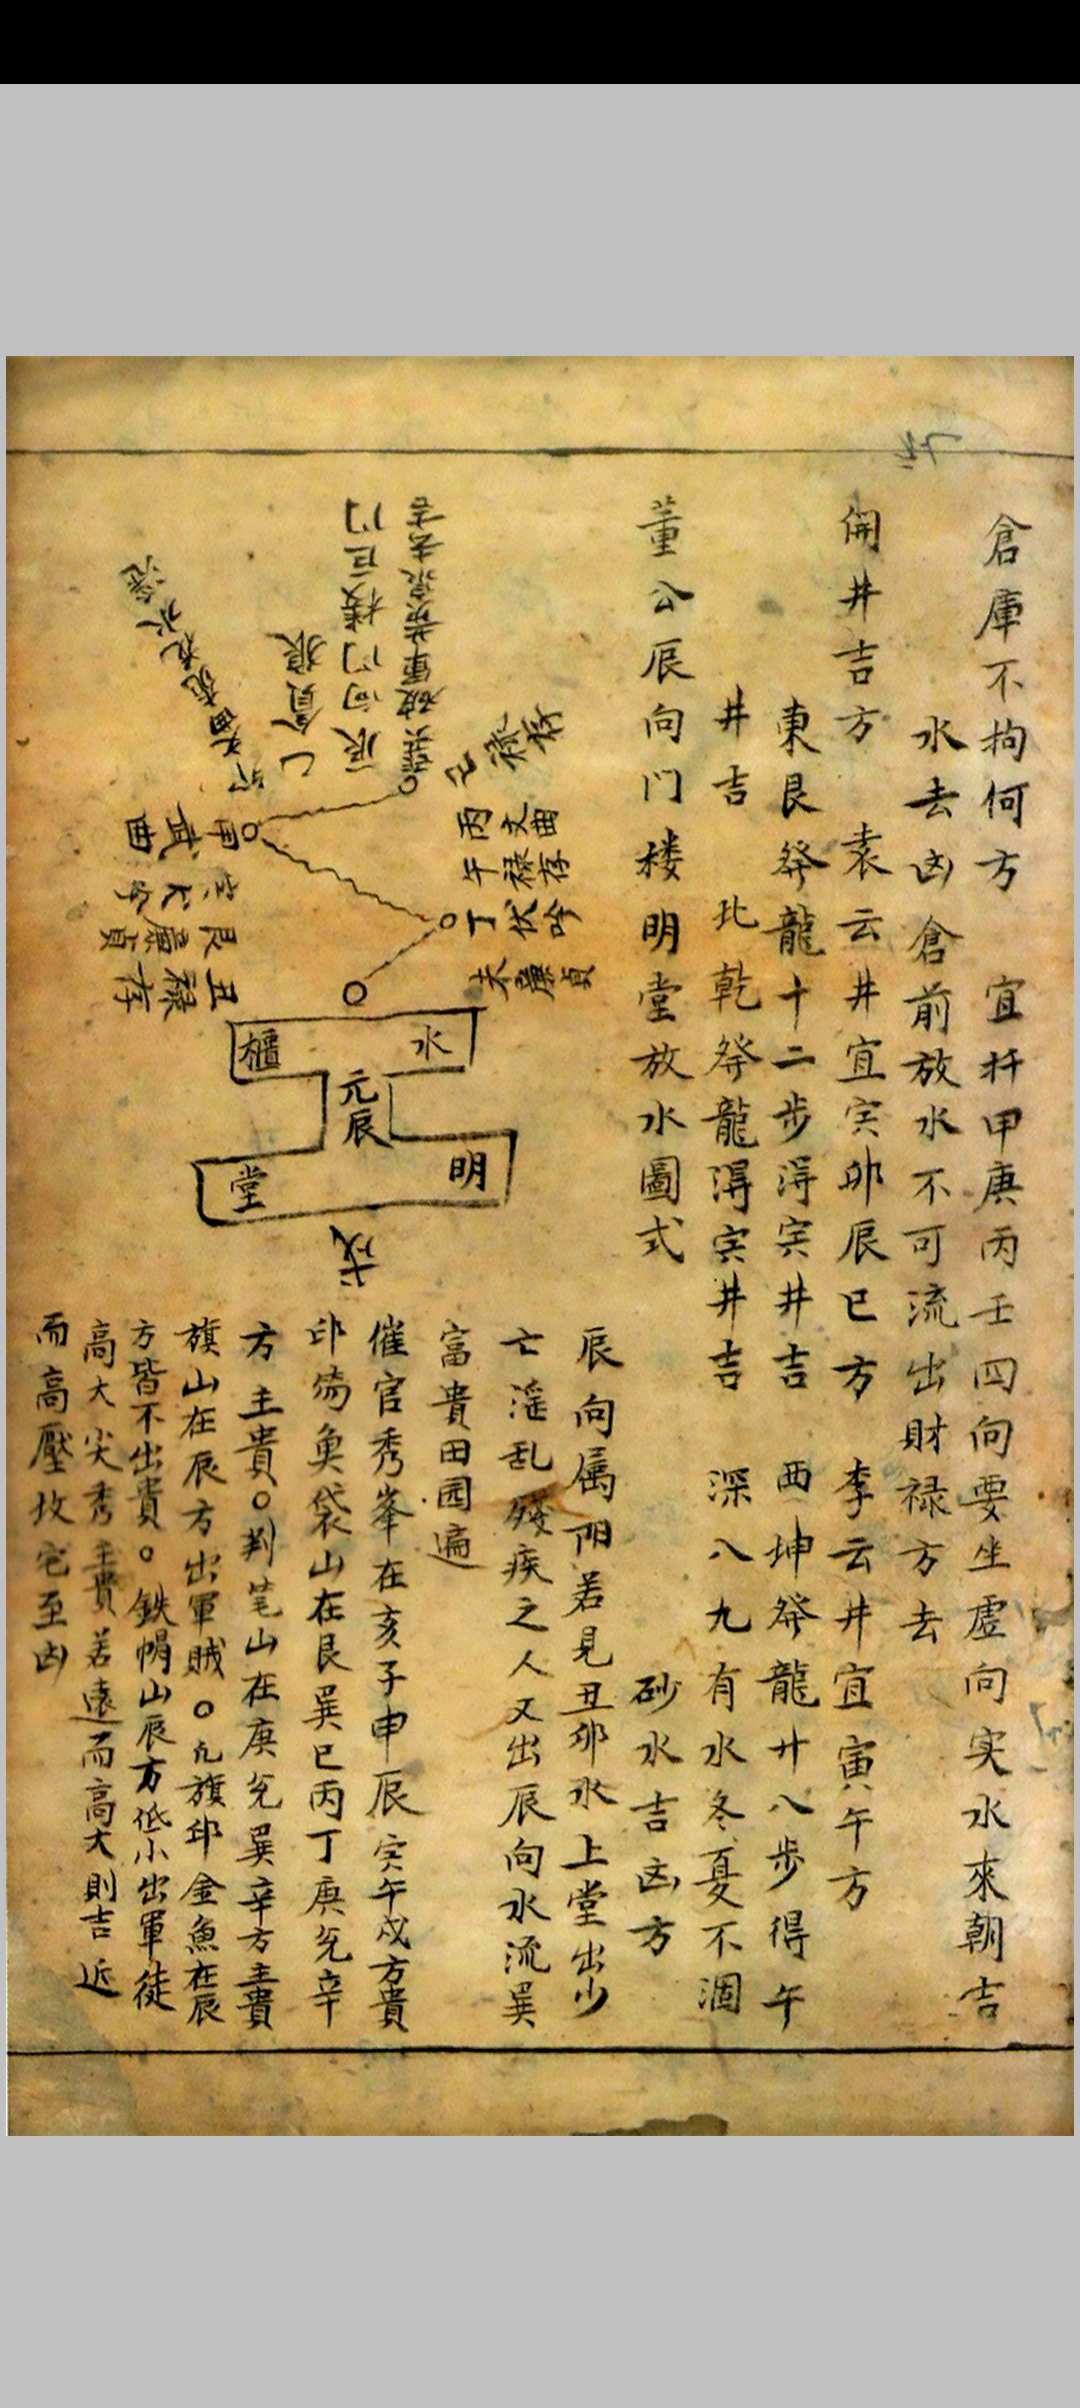 倉庫不拘何方　宜扦甲庚丙壬四向要坐虚向实水來朝吉
水去凶倉前放水不可流出財禄方去
開井吉方　袁云井宜寅卯辰巳方　李云井宜寅午方
東艮發龍十二步淂寅井吉　西坤發龍廾八步得午
井吉　北乾發龍淂寅井吉　深八九有水冬夏不涸
董公辰向门楼明堂放水圖式　砂水吉凶方
辰向属阳若見丑卯水上堂出少
亡滛乱殘疾之人又出辰向水流巽
富貴田园遍
催官秀峯在亥子申辰寅午戍方貴
印笏魚袋山在艮巽巳丙丁庚兊辛
方主貴○判笔山在庚兊巽辛方主貴
旗山在辰方出軍賊○凢旗印金魚在辰
方皆不出貴○鉄帽山辰方低小出軍徒
高大尖秀主貴若遠而高大則吉近
而高壓坟宅至凶
巳禄存
丙文曲
午禄存
丁伏吟
未廉貞
辰向门楼宜门
乙貪狼
甲武曲
艮廉貞
丑禄存
水櫃
元辰
明堂
戍